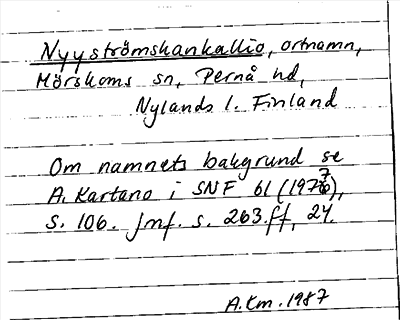 Nyyströmskankallio, ortnamn,
Mörskoms sn, Pernå hd,
Nylands l. Finland
Om namnets bakgrund se
A. Kartano i SNF 61 (1977),
S. 106. Jmf. s. 263.ff, 24.
A.Km. 1987